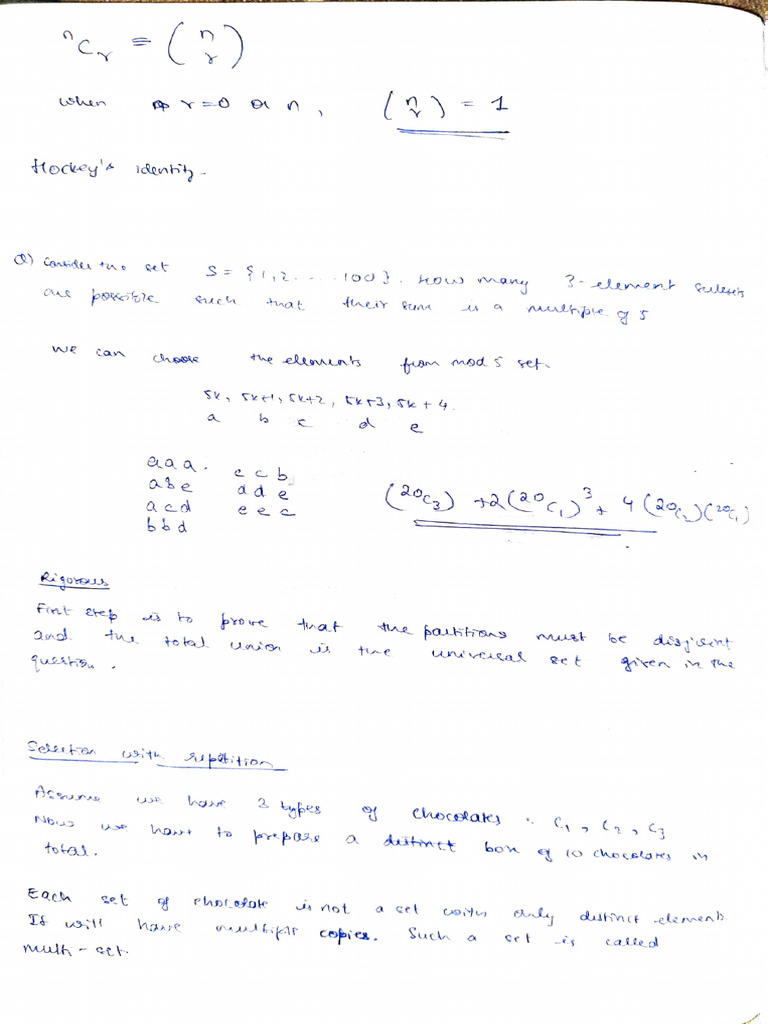 ⁿCᵣ = (n r)
when r=0 or n, (n r) = 1
Hockey's identity.
Q) Consider the set S = {1,2.....100}. How many 3-element subsets
are possible such that their sum is a multiple of 5
We can choose the elements from mod 5 set.
5k, 5k+1, 5k+2, 5k+3, 5k+4.
a b c d e
aaa. ccb
abe dde
acd eec
bbd
(²⁰C₃) + 2(²⁰C₁)³ + 4(²⁰C₂)(²⁰C₁)
Rigorous
First step is to prove that the partitions must be disjoint
and the total union is the universal set given in the
question.
Selection with repetition
Assume we have 3 types of chocolates. C₁, C₂, C₃
Now we have to prepare a distinct box of 10 chocolates in
total.
Each set of chocolate is not a set with only distinct elements
It will have multiple copies. Such a set is called
multi-set.